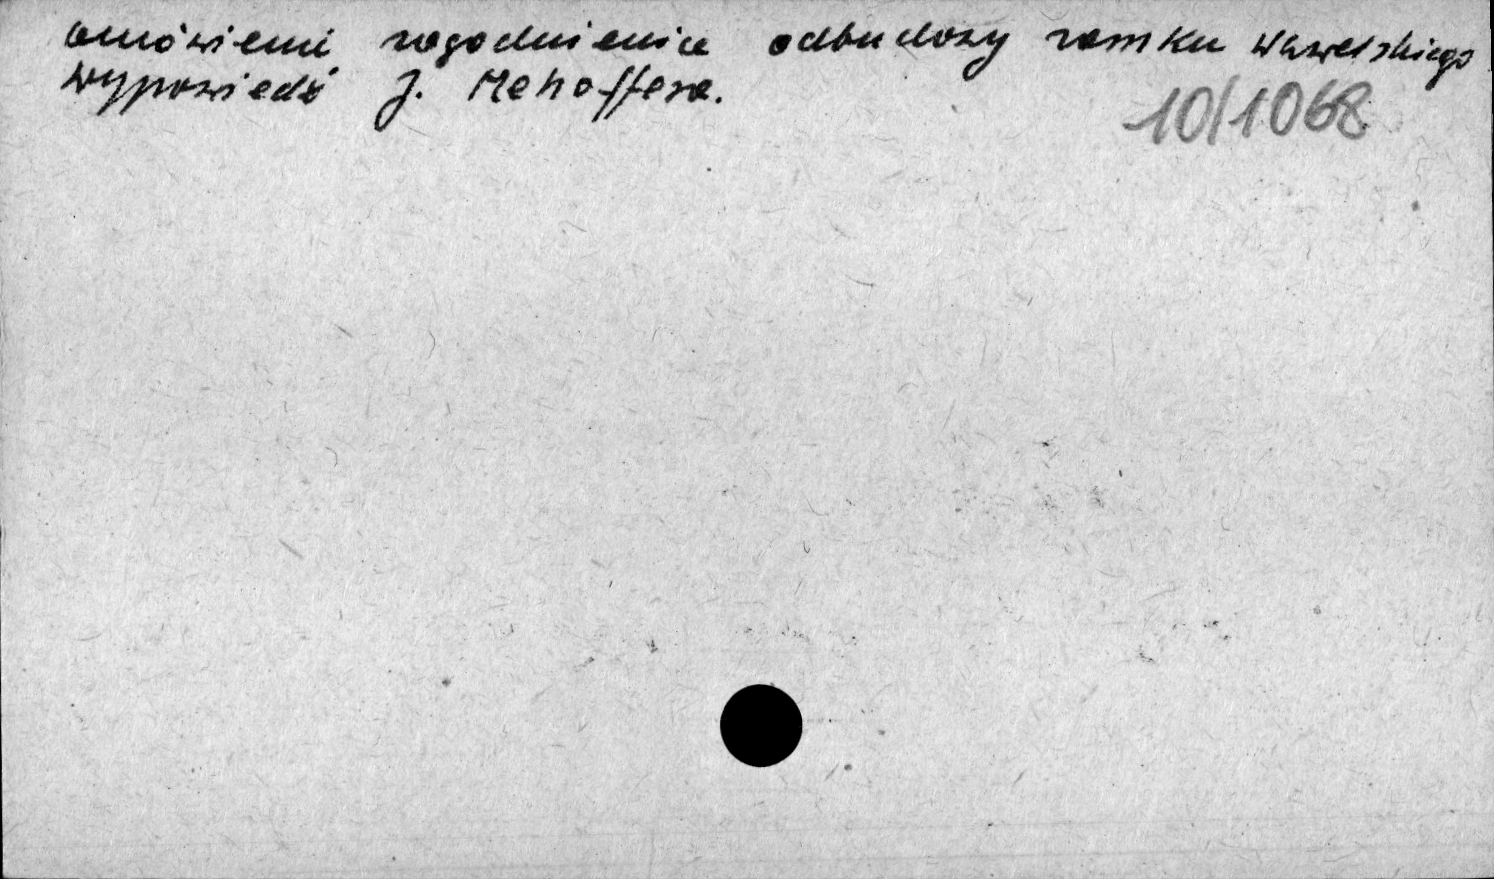 omówienie zagadnienia odbudowy zamku Wawelskiego
Wypowiedź J. Mehoffera.
10/1068